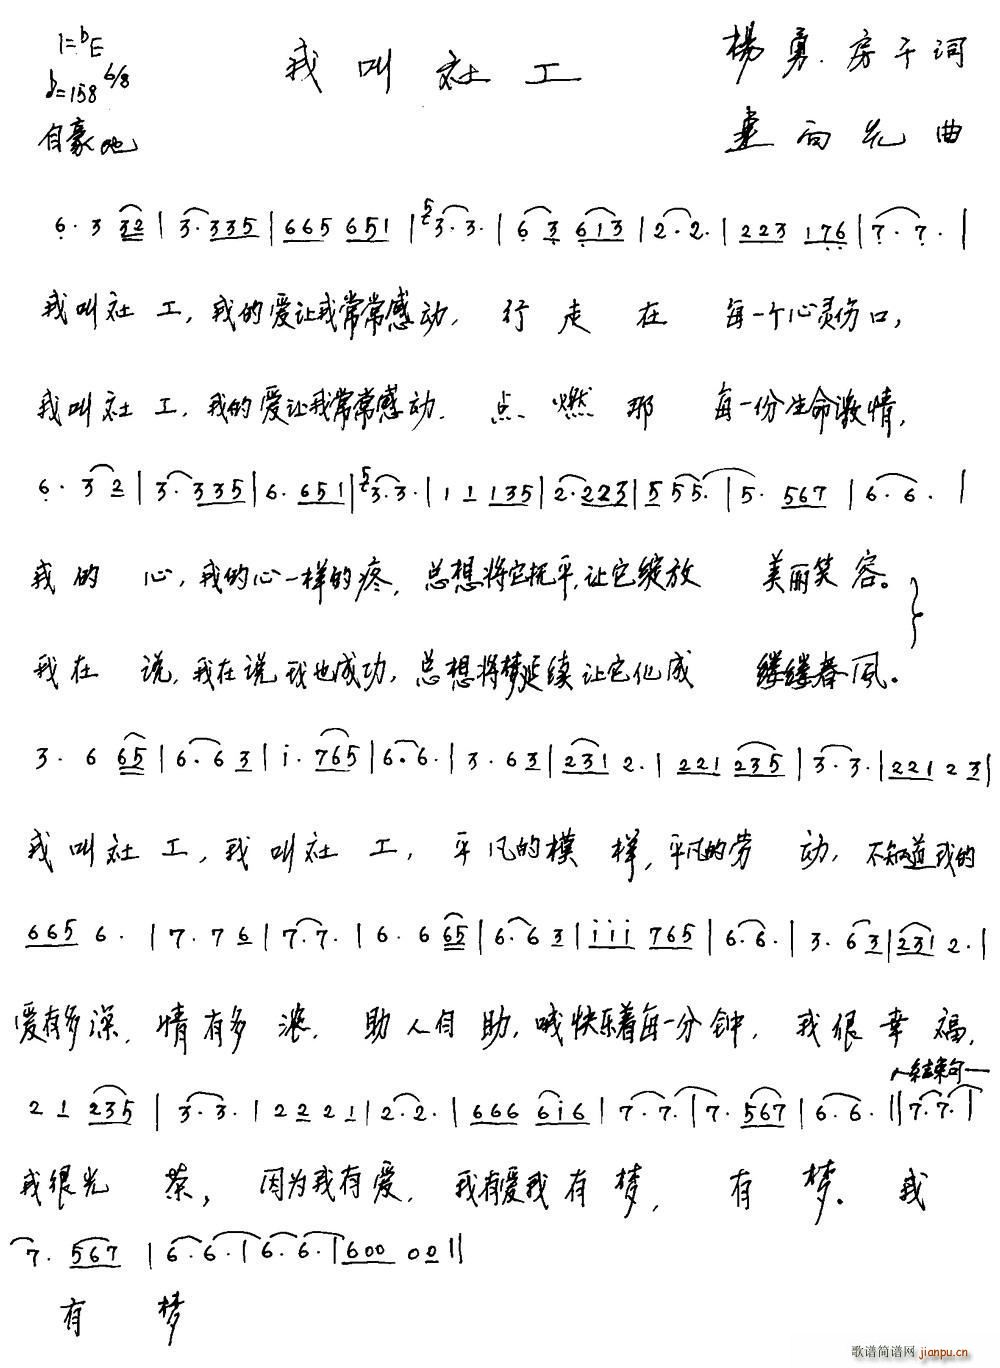 1=bE
=158 6/8
自豪地
我叫社工
楊勇.房千词
向先 曲
6. 3 32 | 3. 335 | 665 651 | 5 3. 3. | 6 3 613 | 2. 2. | 223 176 | 7. 7. |
我叫社工，我的爱让我常常感动，行走在 每一个心灵伤口，
我叫社工，我的爱让我常常感动．点燃那 每一份生命激情，
6. 3 2 | 3. 335 | 6. 651 | 5 3. 3. | 1 1 135 | 2. 223 | 5 55. | 5. 567 | 6. 6. |
我的心，我的心一样的疼，总想将它抚平，让它绽放 美丽笑容。
我在说，我在说我也成功，总想将梦延续让它化成 缕缕春风。
3. 6 65 | 6. 63 | i. 765 | 6. 6. | 3. 63 | 231 2. | 221 235 | 3. 3. | 221 23 |
我叫社工，我叫社工，平凡的模样，平凡的劳动，不知道我的
665 6. | 7. 76 | 7. 7. | 6. 6 65 | 6. 63 | iii 765 | 6. 6. | 3. 63 | 231 2. |
爱有多深，情有多浓．助人自助，喊快乐着每一分钟，我很幸福，
结束句
2 1 235 | 3. 3. | 2 2 2 1 | 2. 2. | 666 6i6 | 7. 7. | 7. 567 | 6. 6. || 7. 7. |
我很光荣，因为我有爱．我有爱我有梦，有梦。我
7. 567 | 6. 6. | 6. 6. | 600 00 ||
有梦
歌谱简谱网 jianpu.cn